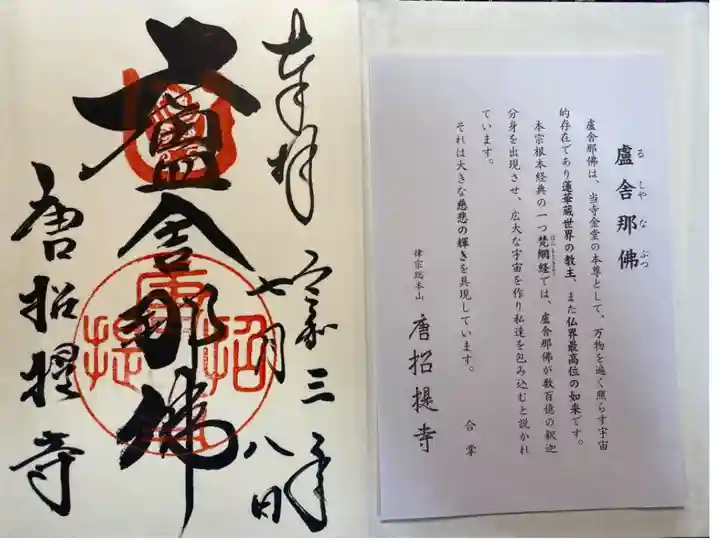 奉拝
令和三年
七月八日
盧舎那佛
唐招提寺
唐招提寺
盧舎那佛
る しや な ぶつ
盧舎那佛は、当寺金堂の本尊として、万物を遍く照らす宇宙
的存在であり蓮華蔵世界の教主、また仏界最高位の如来です。
本宗根本経典の一つ梵網経では、盧舎那佛が数百億の釈迦
分身を出現させ、広大な宇宙を作り私達を包み込むと説かれ
ています。
それは大きな慈悲の輝きを具現しています。
合掌
律宗総本山
唐招提寺